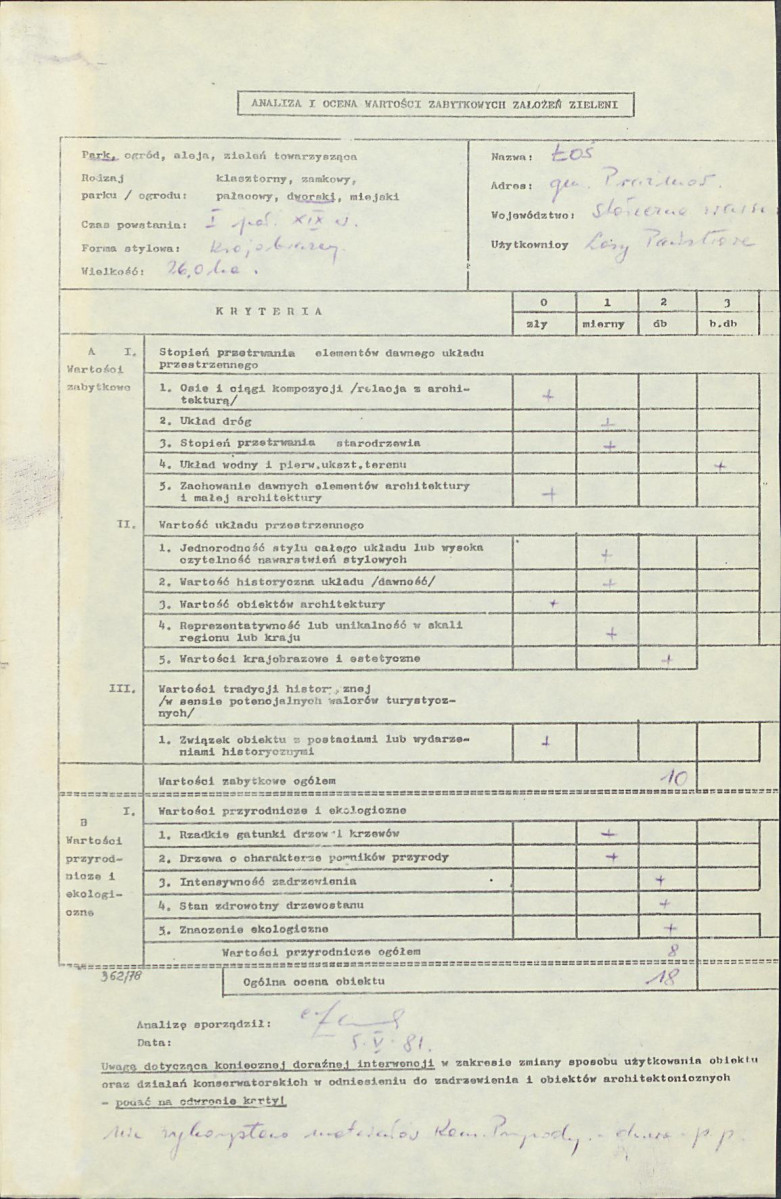 ANALIZA I OCENA WARTOŚCI ZABYTKOWYCH ZAŁOŻEŃ ZIELENI
Park, ogród, aleja, zieleń towarzysząca
Rodzaj klasztorny, zamkowy,
parku / ogrodu: pałacowy, dworski, miejski
Czas powstania: I poł. XIX w.
Forma stylowa: krajobrazowy
Wielkość: 26,0 ha.
Nazwa: ŁOŚ
Adres: gm. Prażmów.
Województwo: Stołeczne
Użytkownicy Lasy Państwowe
KRYTERIA 0 1 2 3
zły mierny db b.db
A I. Stopień przetrwania elementów dawnego układu
Wartości przestrzennego
zabytkowe 1. Osie i ciągi kompozycji /relacja z archi-
tekturą/ +
2. Układ dróg +
3. Stopień przetrwania starodrzewia +
4. Układ wodny i pierw.ukszt.terenu +
5. Zachowanie dawnych elementów architektury
i małej architektury +
II. Wartość układu przestrzennego
1. Jednorodność stylu całego układu lub wysoka
czytelność nawarstwień stylowych +
2. Wartość historyczna układu /dawność/ +
3. Wartość obiektów architektury +
4. Reprezentatywność lub unikalność w skali
regionu lub kraju +
5. Wartości krajobrazowe i estetyczne +
III. Wartości tradycji histor znej
/w sensie potencjalnych walorów turystycz-
nych/
1. Związek obiektu z postaciami lub wydarze-
niami historycznymi +
Wartości zabytkowe ogółem 10
I. Wartości przyrodnicze i ekologiczne
B
Wartości 1. Rzadkie gatunki drzew i krzewów +
przyrod- 2. Drzewa o charakterze pomników przyrody +
nicze i 3. Intensywność zadrzewienia +
ekologi- 4. Stan zdrowotny drzewostanu +
czne 5. Znaczenie ekologiczne +
Wartości przyrodnicze ogółem 8
362/78 Ogólna ocena obiektu 18
Analizę sporządził:
Data: 5.V.81.
Uwagę dotyczącą koniecznej doraźnej interwencji w zakresie zmiany sposobu użytkowania obiektu
oraz działań konserwatorskich w odniesieniu do zadrzewienia i obiektów architektonicznych
- podać na odwrocie karty!
Nie wykorzystano materiałów Kons. Przyrody. p.p.